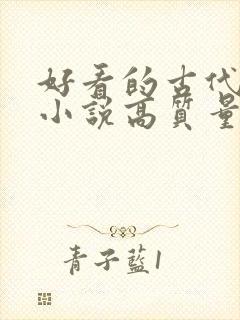 好看的古代
小說高質量
青子藍1